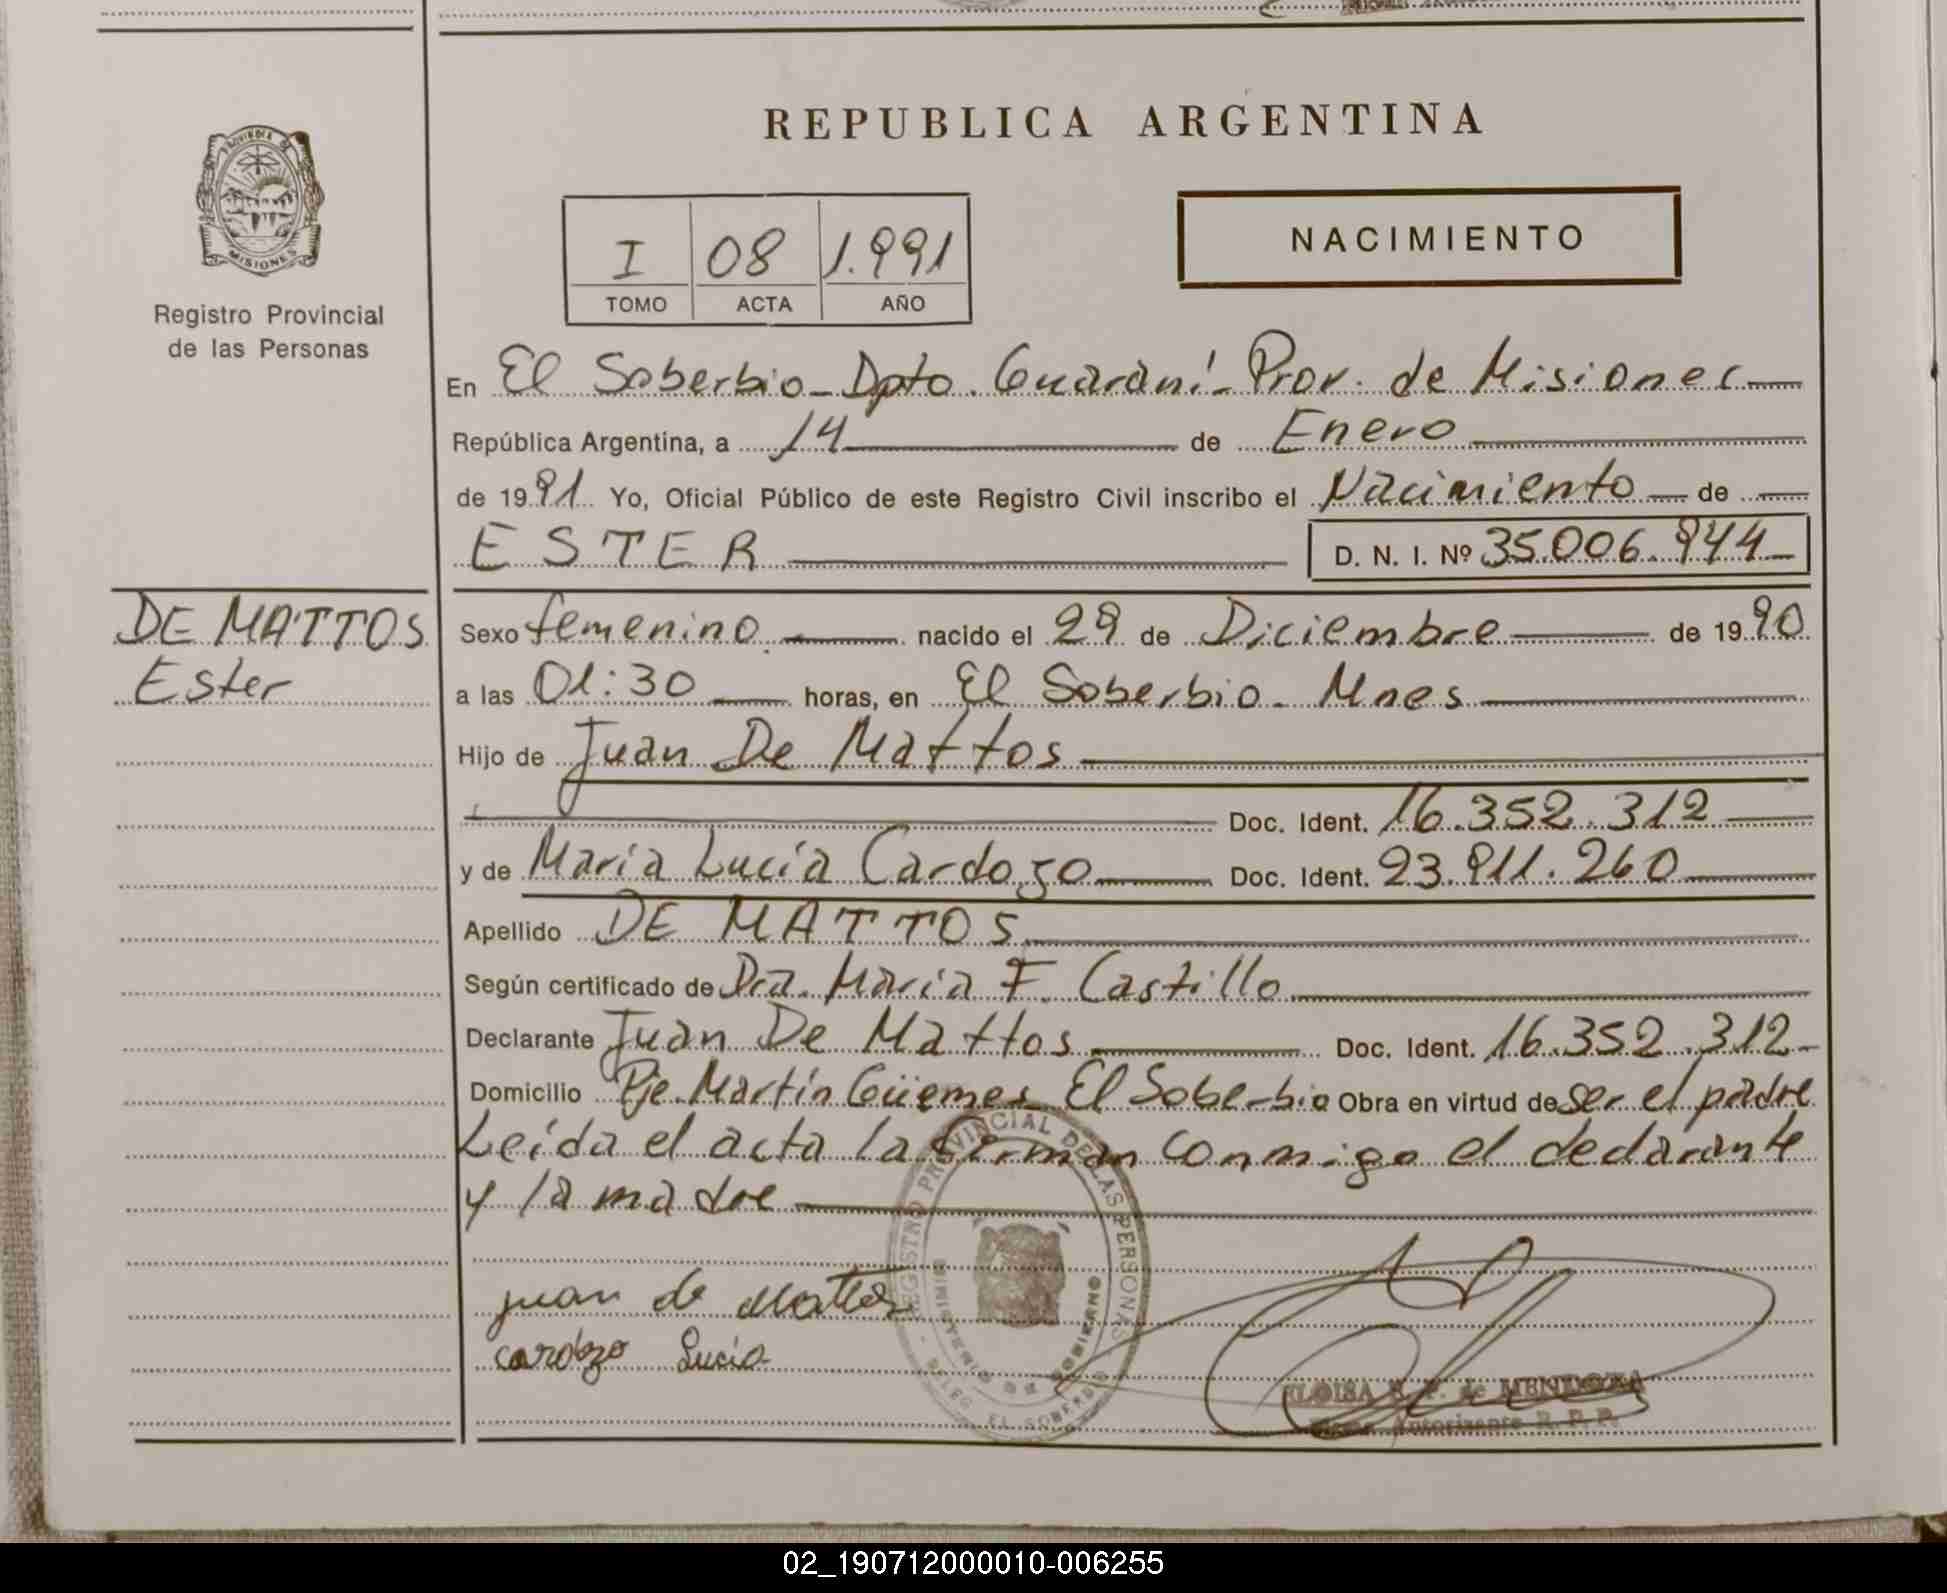 PROVINCIA DE
MISIONES
Registro Provincial
de las Personas
DE MATTOS
Ester
REPUBLICA ARGENTINA
I 08 1.991
TOMO ACTA AÑO
NACIMIENTO
En El Soberbio - Dpto. Guaraní - Prov. de Misiones
República Argentina, a 14 de Enero
de 1991 Yo, Oficial Público de este Registro Civil inscribo el Nacimiento de
ESTER D. N. I. Nº 35.006.944
Sexo femenino nacido el 29 de Diciembre de 1990
a las 01:30 horas, en El Soberbio - Mnes
Hijo de Juan De Mattos
Doc. Ident. 16.352.312
y de Maria Lucía Cardozo Doc. Ident. 23.911.260
Apellido DE MATTOS
Según certificado de Dra. Maria F. Castillo
Declarante Juan De Mattos Doc. Ident. 16.352.312
Domicilio Pje. Martín Güemes El Soberbio Obra en virtud de ser el padre
Leída el acta la firman conmigo el declarante
y la madre
REGISTRO PROVINCIAL DE LAS PERSONAS
MINISTERIO DE GOBIERNO
DELEG. EL SOBERBIO
juan de Mattos
cardozo Lucia
ELOISA de MENDOZA
Autorizante R. P. P.
02_190712000010-006255